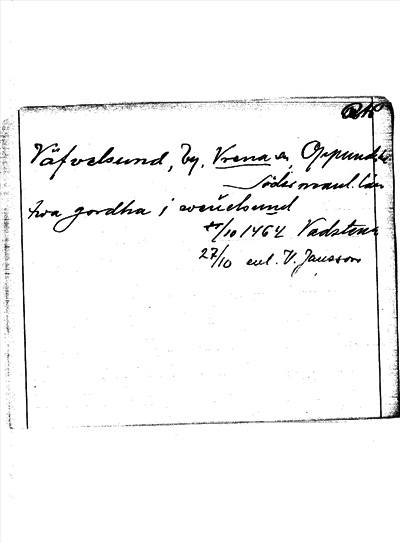 Väfvelsund, by, Vrena sn, Oppunda hd
Södermanl. län
två gordha i wewelsund
/10 1464 Vadstena
27/10 enl. V. Jansson